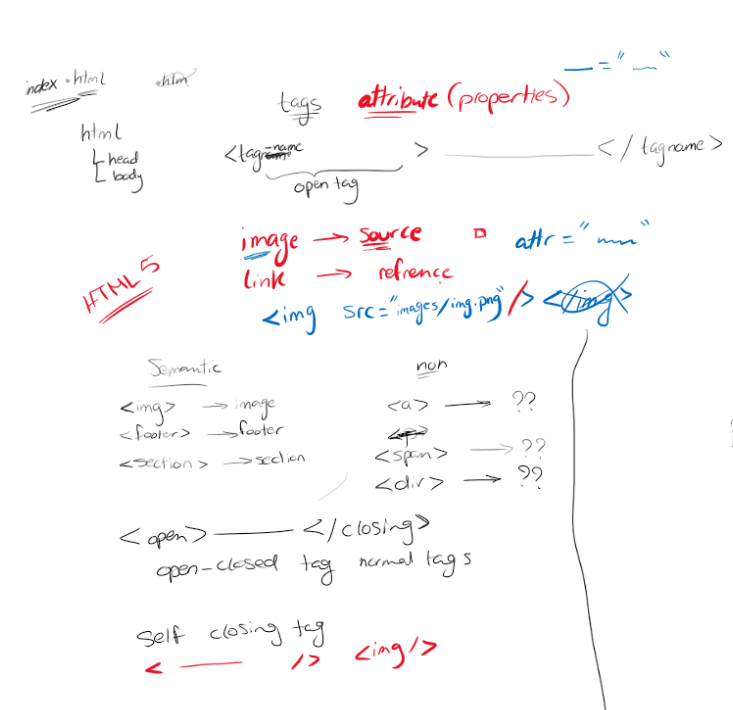 index.html .htm
__ = "__"
tags attribute (properties)
html
head
body
<tagname > ______ </tagname>
open tag
image → source attr = "~~"
link → refrence
HTML5
<img src="images/img.png" /> </img>
Semantic non
<img> → image <a> → ??
<footer> → footer <p>
<section> → section <span> → ??
<div> → ??
<open> ______ </closing>
open-closed tag normal tags
self closing tag
< ______ /> <img/>